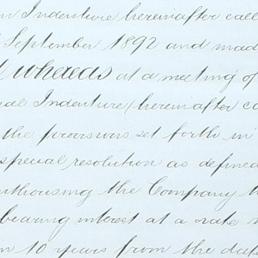 n Indenture hereinafter call
September 1892 and made
whereas at a meeting of
al Indenture (hereinafter ca
the provisions set forth in
special resolution as defined
uthorising the Company t
bearing interest at a rate n
n 10 years from the date